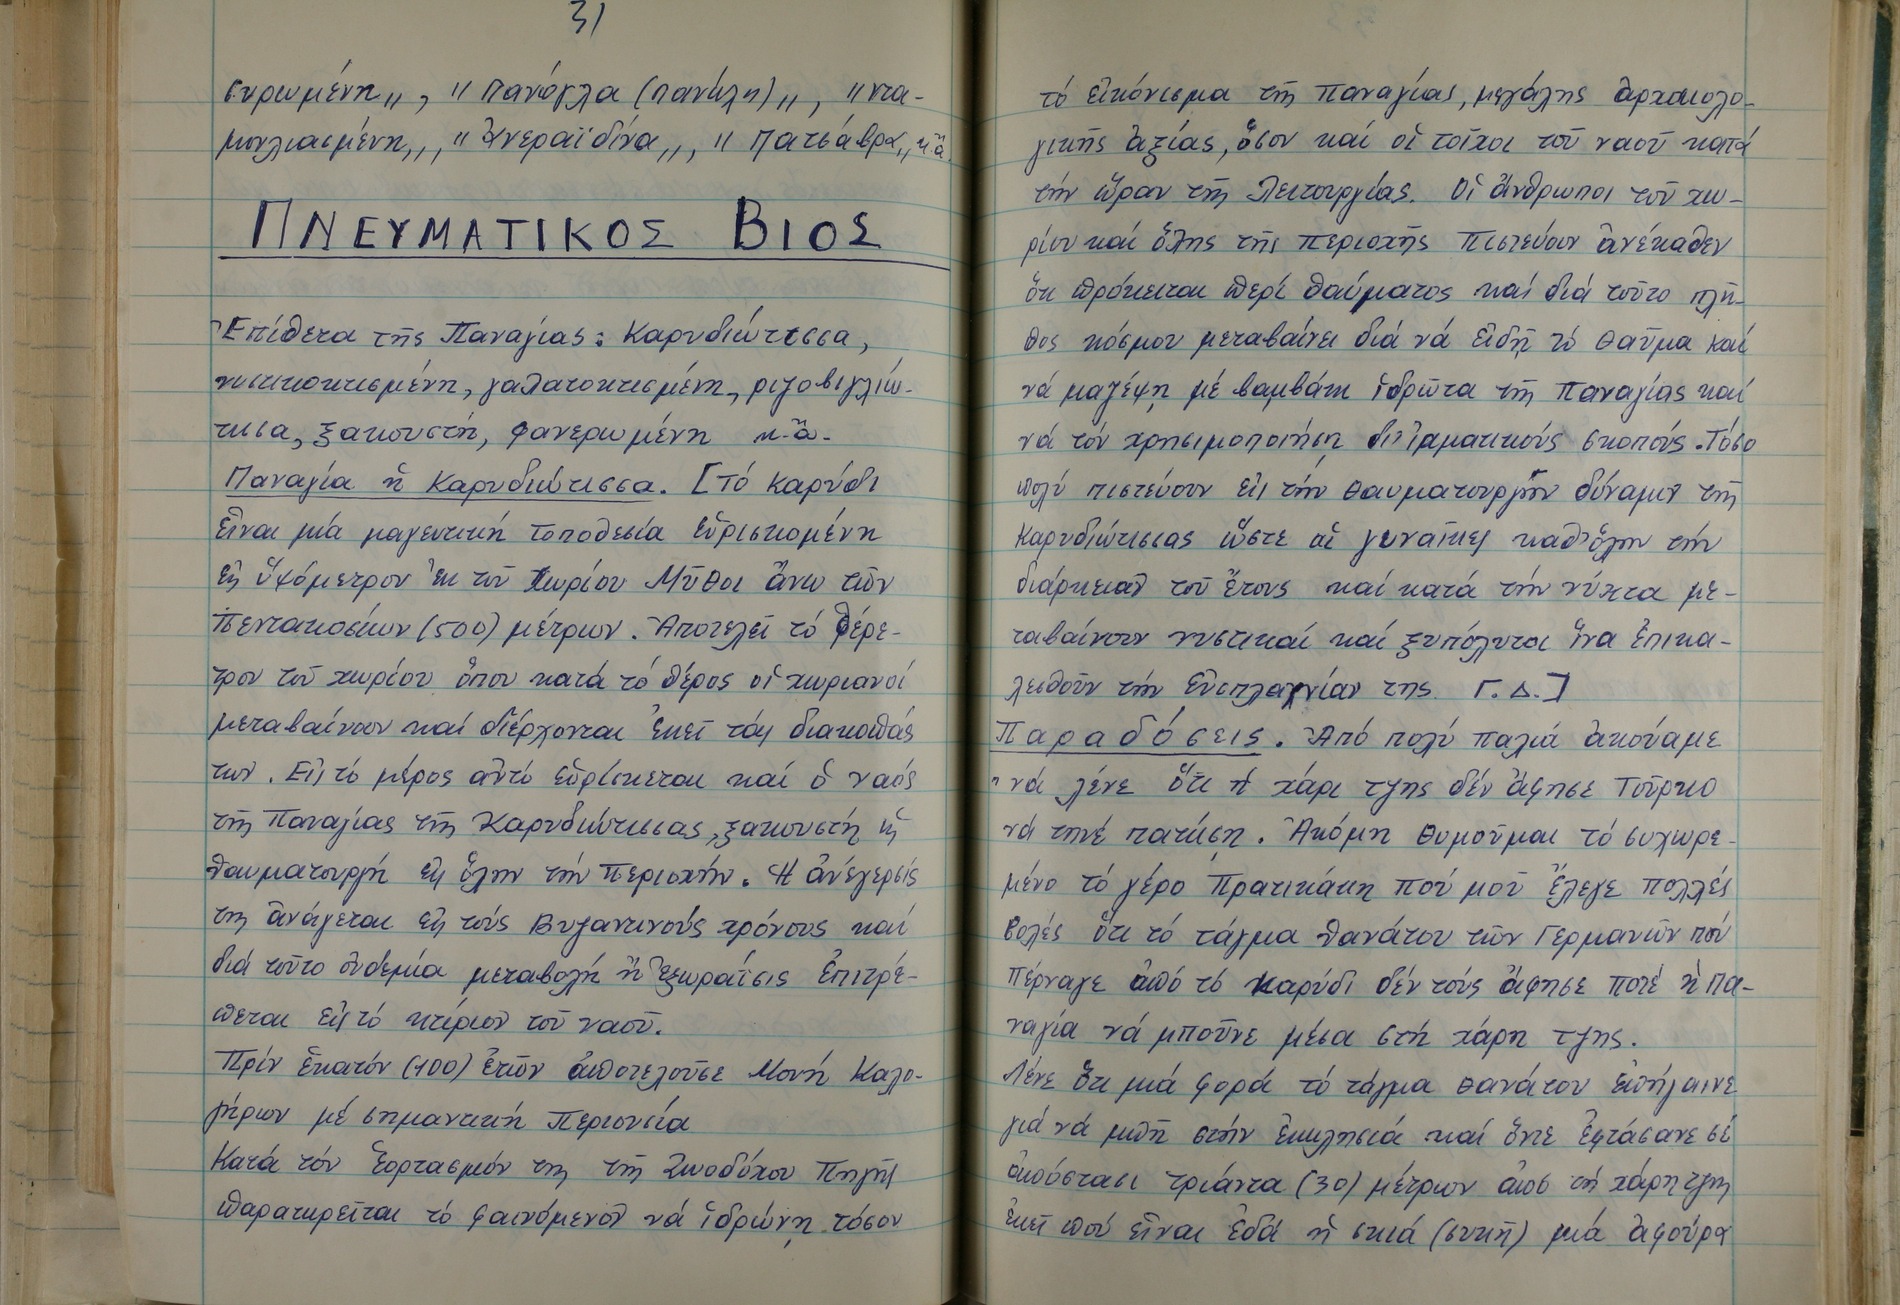 31
συρωμένη,, , ,, πανώγλα (πανώλη),, , ,,ντα-
μουλιασμένη,,, ,,Ἀνεραϊδίνα,,, ,, πατσάβρα,, κ.ἄ.
ΠΝΕΥΜΑΤΙΚΟΣ ΒΙΟΣ
Ἐπίθετα τῆς Παναγίας: Καρυδιώτισσα,
νηστικοκτισμένη, γαλατοκτισμένη, ριζοβιγλιώ-
τισα, ξακουστή, φανερωμένη κ.ἄ.
Παναγία ἡ Καρυδιώτισσα. [Τό Καρύδι
εἶναι μία μαγευτική τοποθεσία εὑρισκομένη
εἰς ὑψόμετρον ἐκ τοῦ χωρίου Μῦθοι ἄνω τῶν
πεντακοσίων (500) μέτρων. Ἀποτελεῖ τό θέρε-
τρον τοῦ χωρίου ὅπου κατά τό θέρος οἱ χωριανοί
μεταβαίνουν καί διέρχονται ἐκεῖ τάς διακοπάς
των. Εἰς τό μέρος αὐτό εὑρίσκεται καί ὁ ναός
τῆς Παναγίας τῆς Καρυδιώτισσας, ξακουστή κ̀
θαυματουργή εἰς ὅλην τήν περιοχήν. Ἡ ἀνέγερσίς
της ἀνάγεται εἰς τούς Βυζαντινούς χρόνους καί
διά τοῦτο οὐδεμία μεταβολή ἤ ἐξωράϊσις ἐπιτρέ-
πεται εἰς τό κτίριον τοῦ ναοῦ.
Πρίν ἑκατόν (100) ἐτῶν ἀποτελοῦσε Μονή Καλο-
γήρων μέ σημαντική περιουσία
Κατά τόν ἑορτασμόν της τῆς Ζωοδόχου Πηγῆς
παρατηρεῖται τό φαινόμενον νά ἱδρώνῃ τόσον
τό εἰκόνισμα τῆς Παναγίας, μεγάλης ἀρχαιολο-
γικῆς ἀξίας, ὅσον καί οἱ τοῖχοι τοῦ ναοῦ κατά
τήν ὥραν τῆς Λειτουργίας. Οἱ ἄνθρωποι τοῦ χω-
ρίου καί ὅλης τῆς περιοχῆς πιστεύουν ἀνέκαθεν
ὅτι πρόκειται περί θαύματος καί διά τοῦτο πλῆ-
θος κόσμου μεταβαίνει διά νά εἰδῇ τό θαῦμα καί
νά μαζέψῃ μέ βαμβάκι ἱδρῶτα τῆς Παναγίας καί
νά τόν χρησιμοποιήσῃ δι' ἰαματικούς σκοπούς. Τόσο
πολύ πιστεύουν εἰς τήν θαυματουργήν δύναμιν τῆς
Καρυδιώτισσας ὥστε αἱ γυναῖκες καθ' ὅλην τήν
διάρκειαν τοῦ ἔτους καί κατά τήν νύχτα με-
ταβαίνουν νηστικαί καί ξυπόλυται ἵνα ἐπικα-
λεσθοῦν τήν εὐσπλαχνίαν της. Γ. Δ.]
Παραδόσεις. Ἀπό πολύ παλιά ἀκούαμε
νά λένε ὅτι ἡ χάρι τζης δέν ἄφησε Τοῦρκο
νά τηνέ πατήσῃ. Ἀκόμη θυμοῦμαι τό συχωρε-
μένο τό γέρο Πρατικάκη πού μοῦ ἔλεγε πολλές
βολές ὅτι τό τάγμα θανάτου τῶν Γερμανῶν πού
πέρναγε ἀπό τό Καρύδι δέν τούς ἄφησε ποτέ ἡ Πα-
ναγία νά μποῦνε μέσα στή χάρη τζης.
Λένε ὅτι μιά φορά τό τάγμα θανάτου ἐπήγαινε
γιά νά μπῆ στήν ἐκκλησιά καί ὄντε ἐφτάσανε σέ
ἀπόστασι τριάντα (30) μέτρων ἀπό τή χάρη τζης
ἐκεῖ πού εἶναι ἐδά ἡ σκιά (συκῆ) μιά ἀφούρα